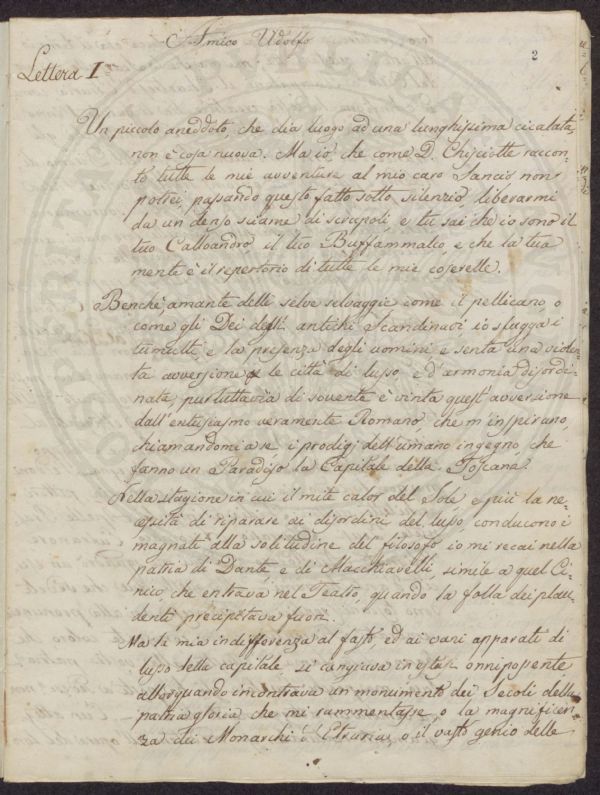 Amico Udolfo
2
Lettera I
Un piccolo aneddoto, che dia luogo ad una lunghissima cicalata,
non è cosa nuova. Ma io, che come D. Chisciotte raccon=
to tutte le mie avventure al mio caro Sancio non
potrei, passando questo fatto sotto silenzio, liberarmi
da un denso sciame di scrupoli e tu sai che io sono il
tuo Calloandro il tuo Buffammalco, e che la tua
mente è il repertorio di tutte le mie coserelle.
Benchè, amante delle selve selvaggie come il pellicano, o
come gli Dei degl' antichi Scandinavi io sfugga i
tumulti, e la presenza degli uomini e senta una violen=
ta avversione le città di lusso, e d'armonia disordi=
nata, pur tuttavia di sovente è vinta quest'avversione
dall'entusiasmo veramente Romano, che m'inspirano,
chiamandomi a se, i prodigj dell'umano ingegno, che
fanno un Paradiso la Capitale della Toscana.
Nella stagione in cui il mite calor del Sole, e più la ne=
cessità di riparare ai disordini del lusso, conducono i
magnati alla solitudine del filosofo, io mi recai nella
patria di Dante, e di Macchiavelli, simile a quel Ci=
nico, che entrava nel Teatro, quando la folla dei plau=
denti precipitava fuori.
Ma la mia indifferenza al fasto, ed ai vani apparati di
lusso della capitale si cangiava in estasi onnipossente
allorquando incontrava un monumento dei Secoli della
patria gloria che mi rammentasse, o la magnificen=
za dei Monarchi d'Etruria, o il vasto genio delle